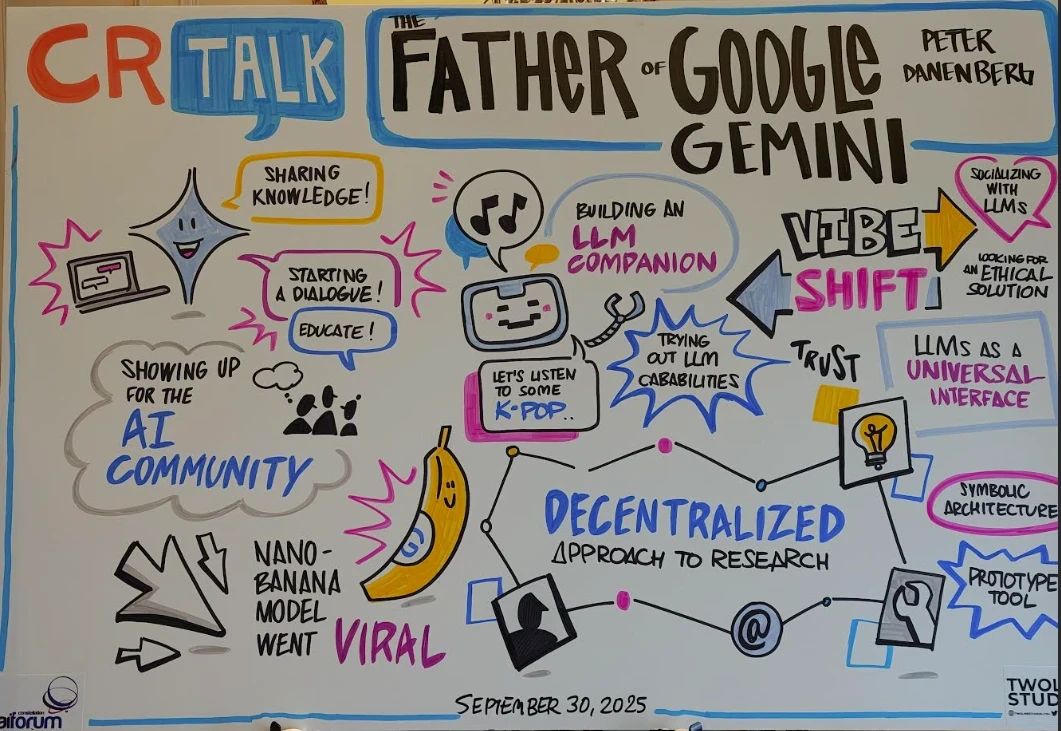 CR TALK
THE
FATHER OF GOOGLE
GEMINI
PETER
DANENBERG
SHARING
KNOWLEDGE!
STARTING
A DIALOGUE!
EDUCATE!
SHOWING UP
FOR THE
AI
COMMUNITY
BUILDING AN
LLM
COMPANION
LET'S LISTEN
TO SOME
K-POP..
TRYING
OUT LLM
CABABILITIES
VIBE
SHIFT
SOCIALIZING
WITH
LLMs
LOOKING FOR
AN ETHICAL
SOLUTION
TRUST
LLMs AS A
UNIVERSAL
INTERFACE
SYMBOLIC
ARCHITECTURE
PROTOTYPE
TOOL
DECENTRALIZED
APPROACH TO RESEARCH
@
NANO-
BANANA
MODEL
WENT VIRAL
G
SEPTEMBER 30, 2025
constellation
aiforum
TWOL
STUD